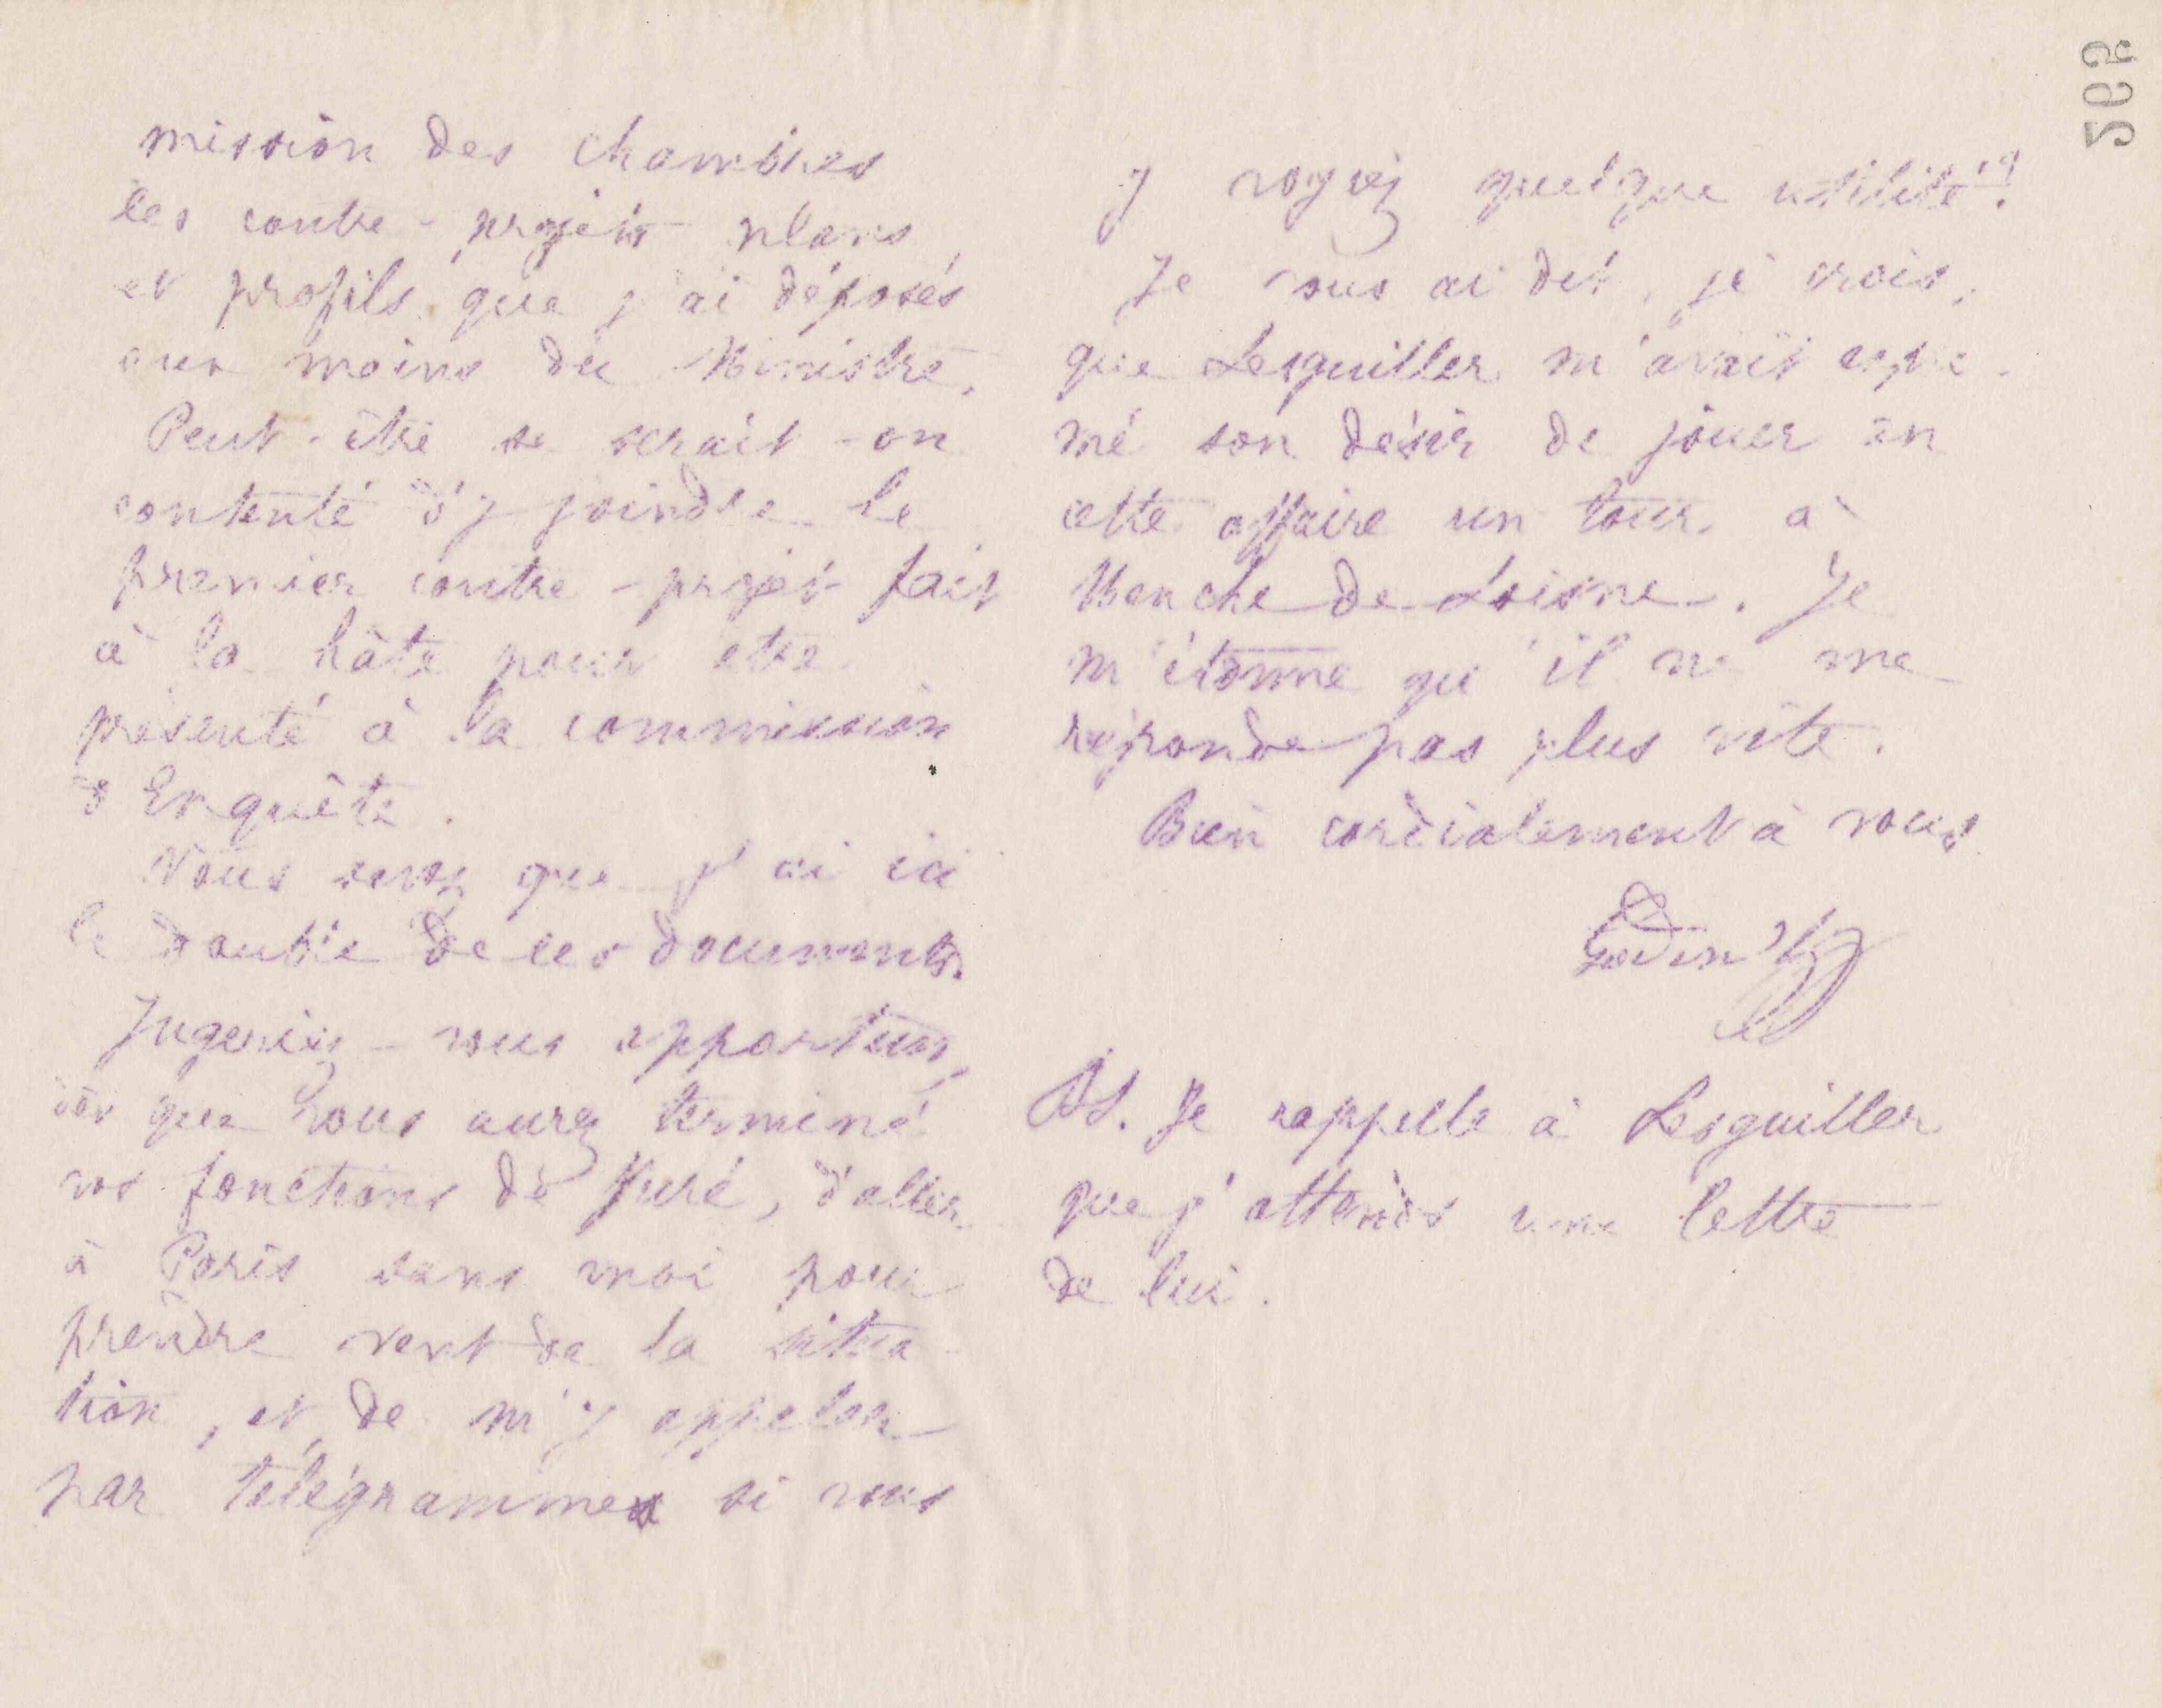 mission des chambres
les contre-projets plans
et profils que j'ai déposés
aux mains du Ministre.
Peut-être se serait-on
contenté d'y joindre le
premier contre-projet fait
à la hâte pour etre
présenté à la commission
d'Enquête.
Vous savez que j'ai ici
le double de ces documents.
Jugeriez-vous opportun,
dès que vous aurez terminé
vos fonctions de Juré, d'aller
à Paris sans moi pour
prendre vent de la situa-
tion, et de m'y appeler
par télégramme si vous
y voyiez quelque utilité?
Je vous ai dit, je crois,
que Lesguiller m'avait expri-
mé son désir de jouer en
cette affaire un tour à
Menche de Loisne. Je
m'étonne qu'il ne me
réponde pas plus vite.
Bien cordialement à vous
Godin
PS. Je rappelle à Lesguiller
que j'attends une lettre
de lui.
265